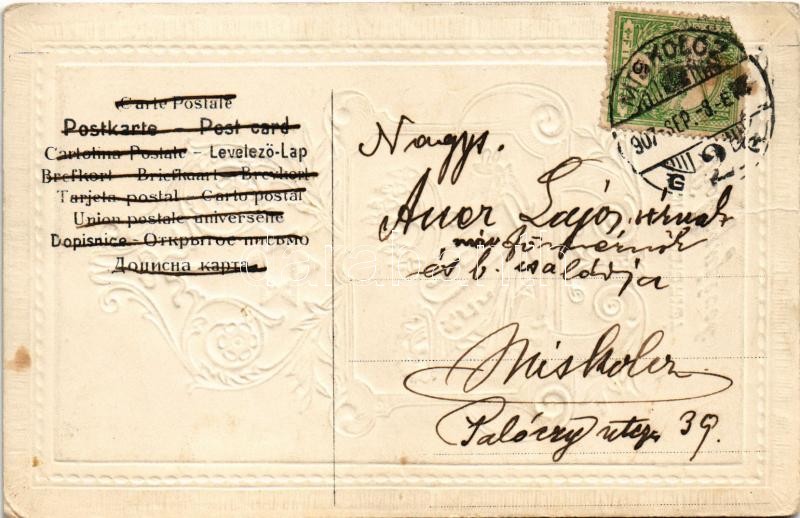 Carte Postale
Postkarte – Post card
Cartolina Postale – Levelező-Lap
Brefkort – Briefkaart – Brevkort
Tarjeta postal – Carto postal
Union postale universelle
Dopisnice – Открытое письмо
Дописна карта
MISKOLCZ
907 SEP. -8.
2
Nagys.
Auer Lajos úrnak
főmérnök
és b. családja
Miskolcz
Palóczy utcza 39.